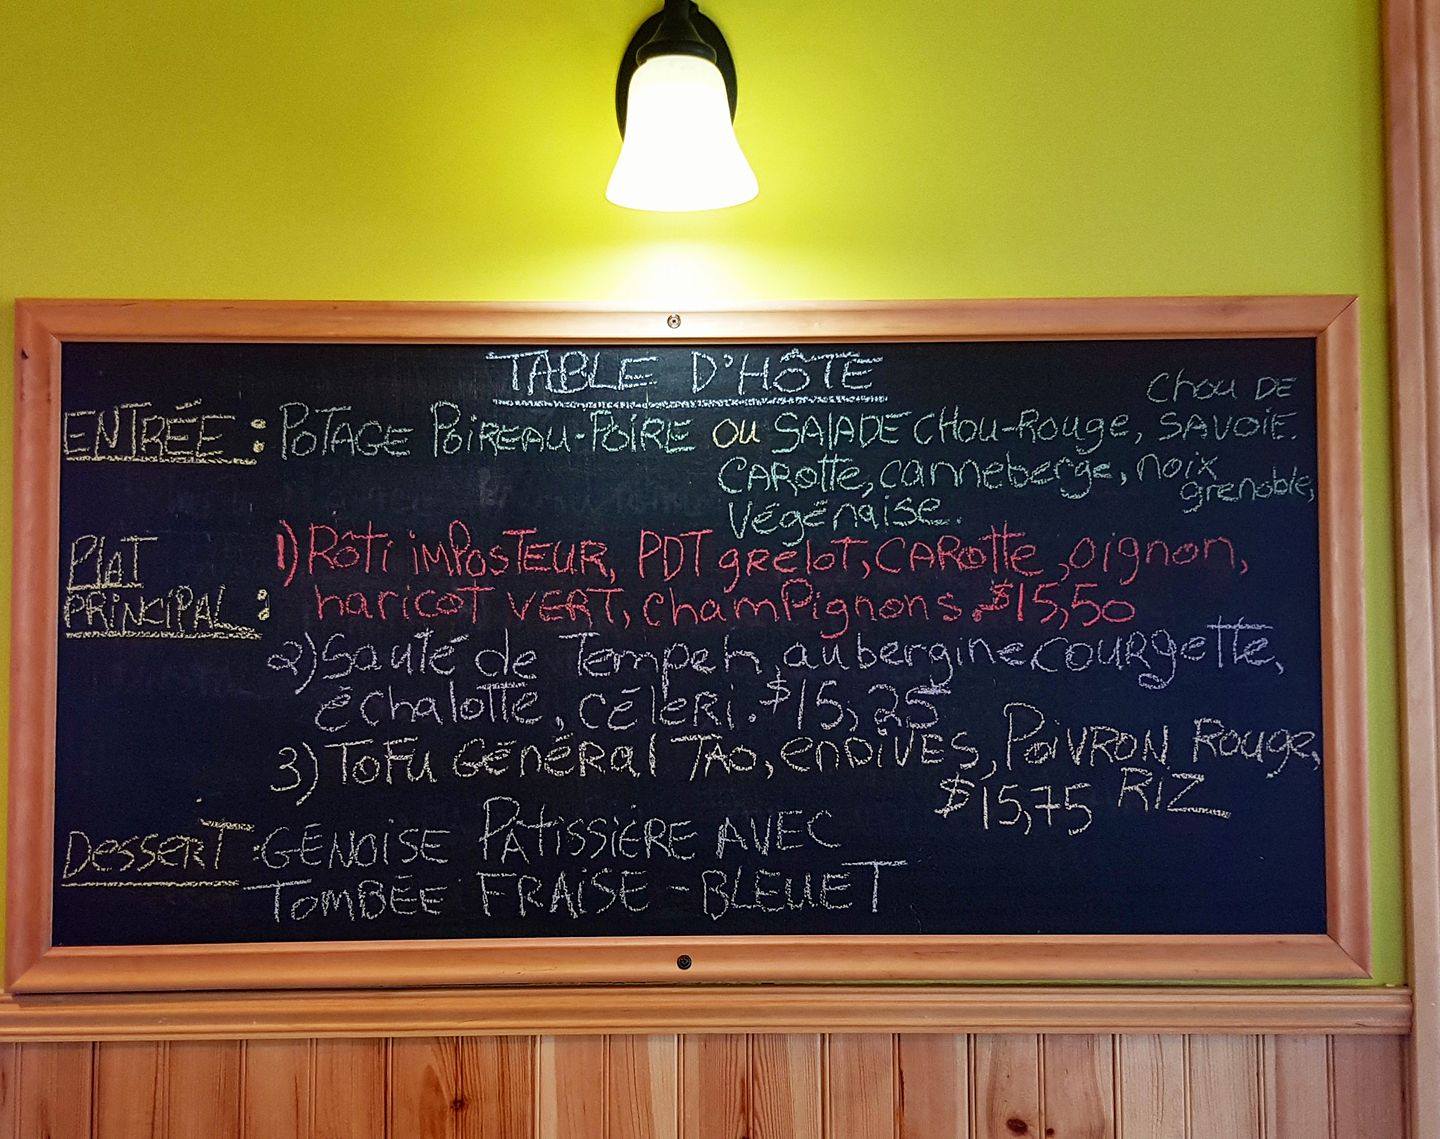 TABLE D'HÔTE
ENTRÉE : POTAGE POIREAU-POIRE OU SALADE CHOU-ROUGE, CHOU DE SAVOIE.
CAROTTE, canneberge, noix grenoble,
Végénaise.
PLAT PRINCIPAL : 1) Rôti imposTEUR, PDT grelot, CAROTTE, oignon,
haricot VERT, champignons. $15,50
2) Sauté de Tempeh, aubergine, courgette,
échalotte, céleri. $15,25
3) TOFU GÉNÉRAL TAO, ENDIVES, POIVRON ROUGE,
$15,75 RIZ
DESSERT : GÉNOISE PÂTISSIÈRE AVEC
TOMBÉE FRAISE - BLEUET